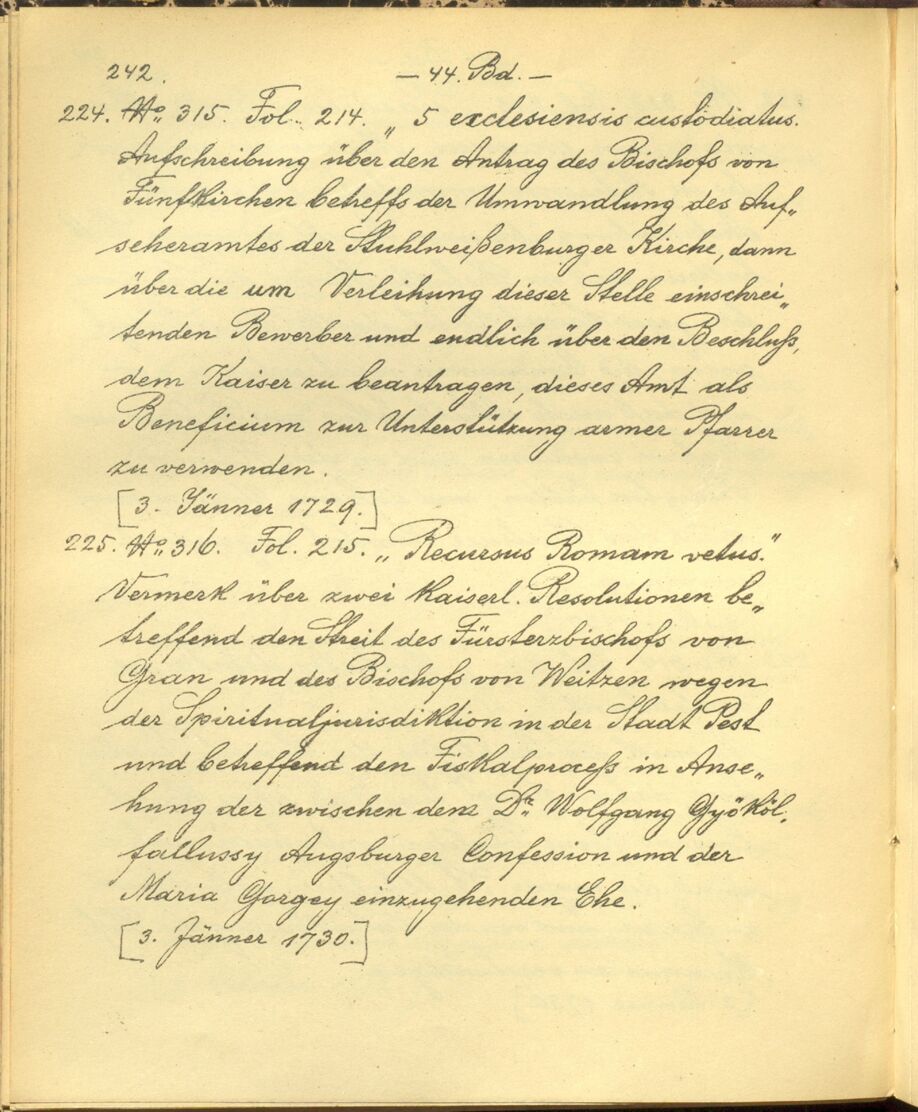 242.
— 44. Bd. —
224. No. 315. Fol. 214. „ 5 exclesiensis custodiatus.
Aufschreibung über den Antrag des Bischofs von
Fünfkirchen betreffs der Umwandlung des Auf„
seheramtes der Stuhlweißenburger Kirche, dann
über die um Verleihung dieser Stelle einschrei„
tenden Bewerber und endlich über den Beschluß,
dem Kaiser zu beantragen, dieses Amt als
Beneficium zur Unterstützung armer Pfarrer
zu verwenden.
[3. Jänner 1729.]
225. No. 316. Fol. 215. „Recursus Romam vetus."
Vermerk über zwei Kaiserl. Resolutionen be„
treffend den Streit des Fürsterzbischofs von
Gran und des Bischofs von Weitzen wegen
der Spiritualjurisdiktion in der Stadt Pest
und betreffend den Fiskalproceß in Anse„
hung der zwischen dem Dr. Wolfgang Gyököl„
fallussy Augsburger Confession und der
Maria Gorgey einzugehenden Ehe.
[3. Jänner 1730.]